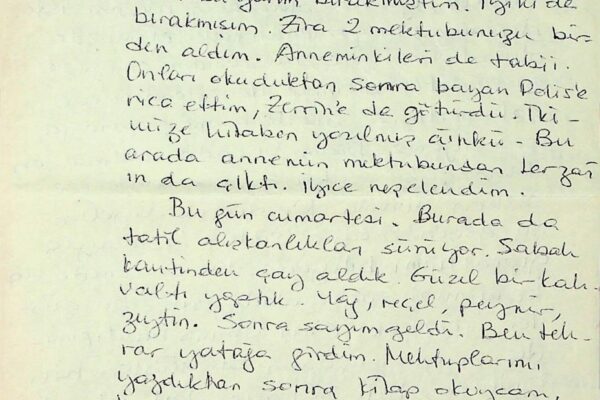 yarım bırakmıştım. İyi ki de
bırakmışım. Zira 2 mektubunuzu bir-
den aldım. Anneminkileri de tabii.
Onları okuduktan sonra bayan Polis'e
rica ettim, Zerrin'e de götürdü. İki-
mize hitaben yazılmış çünkü. Bu
arada annemin mektubundan
ın da çıktı. iyice neşelendim.
Bu gün cumartesi. Burada da
tatil alışkanlıkları sürüyor. Sabah
kantinden çay aldık. Güzel bir kah-
valtı yaptık. Yağ, reçel, peynir,
zeytin. Sonra sayım geldi. Ben tek-
rar yatağa girdim. Mektuplarımı
yazdıktan sonra kitap okuycam,